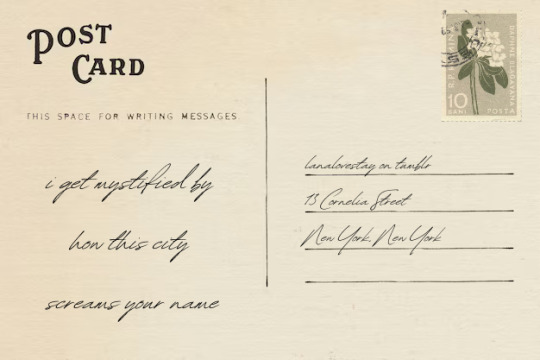 POST
CARD
THIS SPACE FOR WRITING MESSAGES
i get mystified by
how this city
screams your name
lanalovestay on tumblr
13 Cornelia Street
New York, New York
10
BANI
POSTA